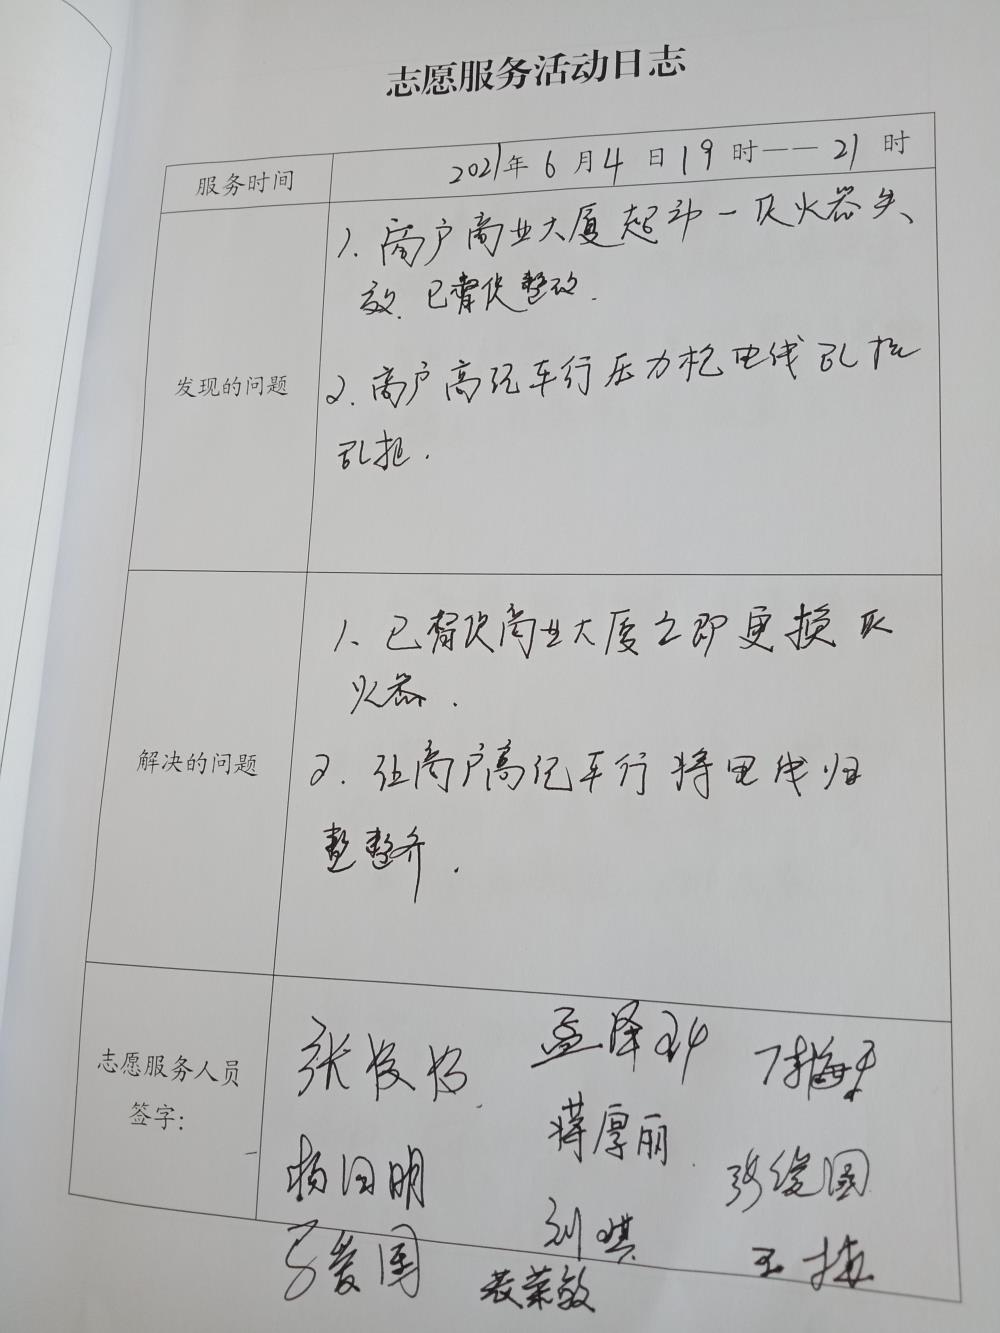 志愿服务活动日志
服务时间
2021年6月4日19时——21时
发现的问题
1.商户商业大厦起部一灭火器失
效.已督促整改.
2.商户高记车行压力枪电线乱拉
乱扯.
解决的问题
1.已督促商业大厦立即更换灭
火器.
2.让商户高记车行将电线归
整整齐.
志愿服务人员
签字:
张俊
孟泽
杨国明
蒋厚丽
张俊国
马爱国
刘琪
王梅
裴荣敏